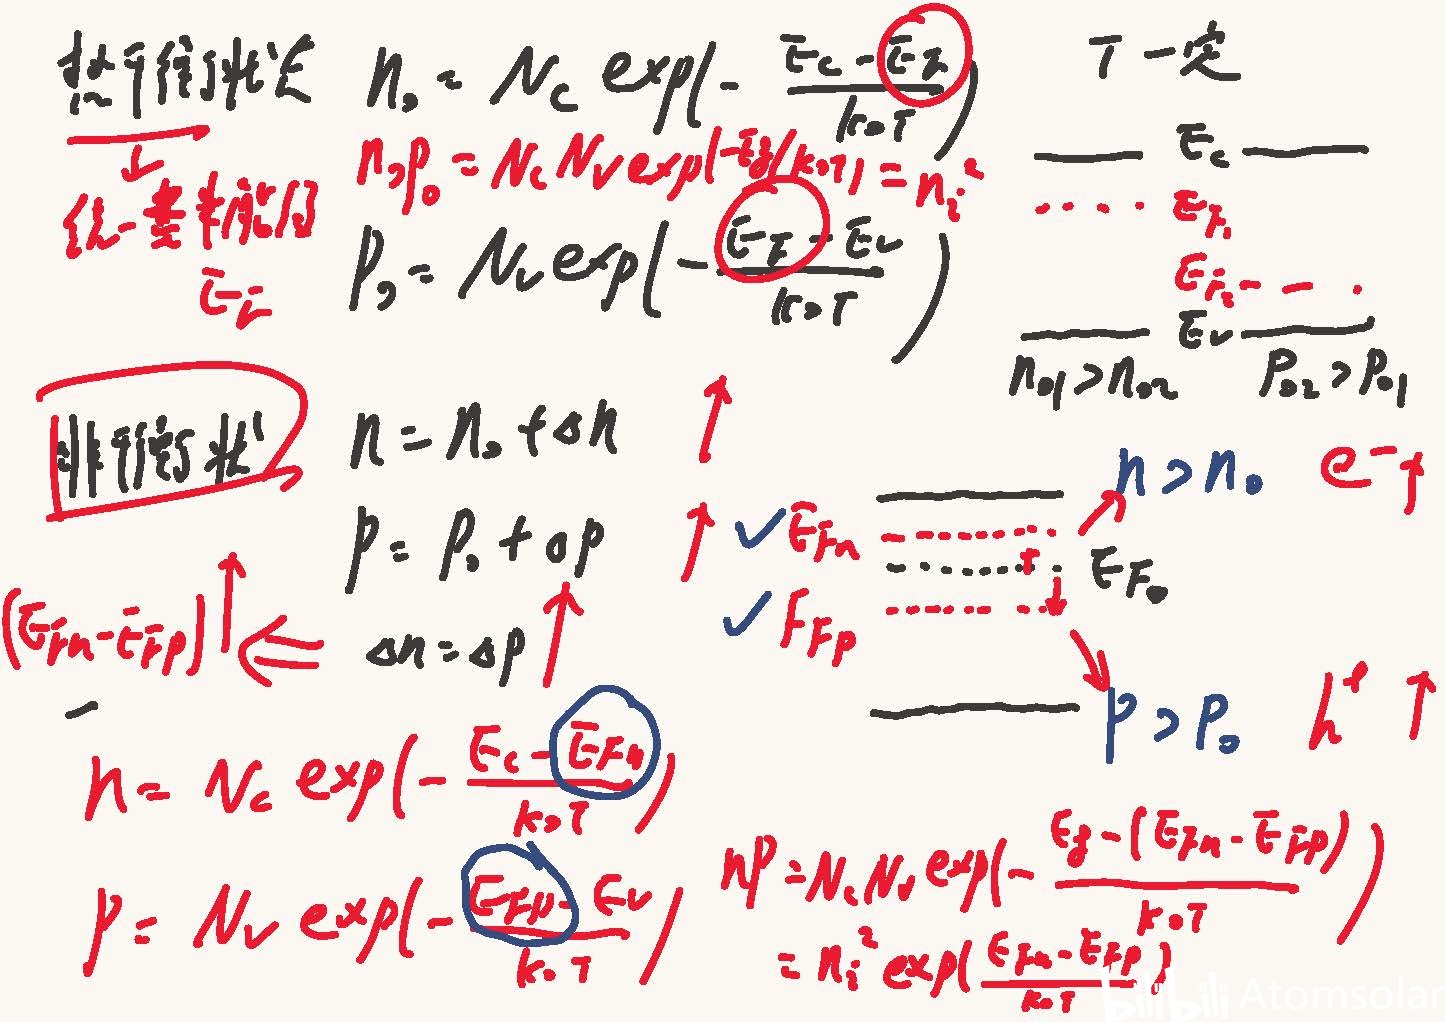 热平衡状态
n₀ = N_c exp(- (E_c - E_F)/(k₀T))
T一定
n₀p₀ = N_c N_v exp(-E_g/k₀T) = n_i²
统一费米能级
E_F
p₀ = N_v exp(- (E_F - E_v)/(k₀T))
E_c
E_F₁
E_F₂
E_v
n₀₁ > n₀₂ p₀₂ > p₀₁
非平衡状
n = n₀ + Δn ↑
p = p₀ + Δp ↑
Δn = Δp ↑
(E_Fn - E_Fp) ↑ ⇐
✓ E_Fn
E_F₀
✓ E_Fp
n > n₀ e⁻ ↑
p > p₀ h⁺ ↑
n = N_c exp(- (E_c - E_Fn)/(k₀T))
p = N_v exp(- (E_Fp - E_v)/(k₀T))
np = N_c N_v exp(- (E_g - (E_Fn - E_Fp))/(k₀T))
= n_i² exp((E_Fn - E_Fp)/(k₀T))
bilibili Atomsolar